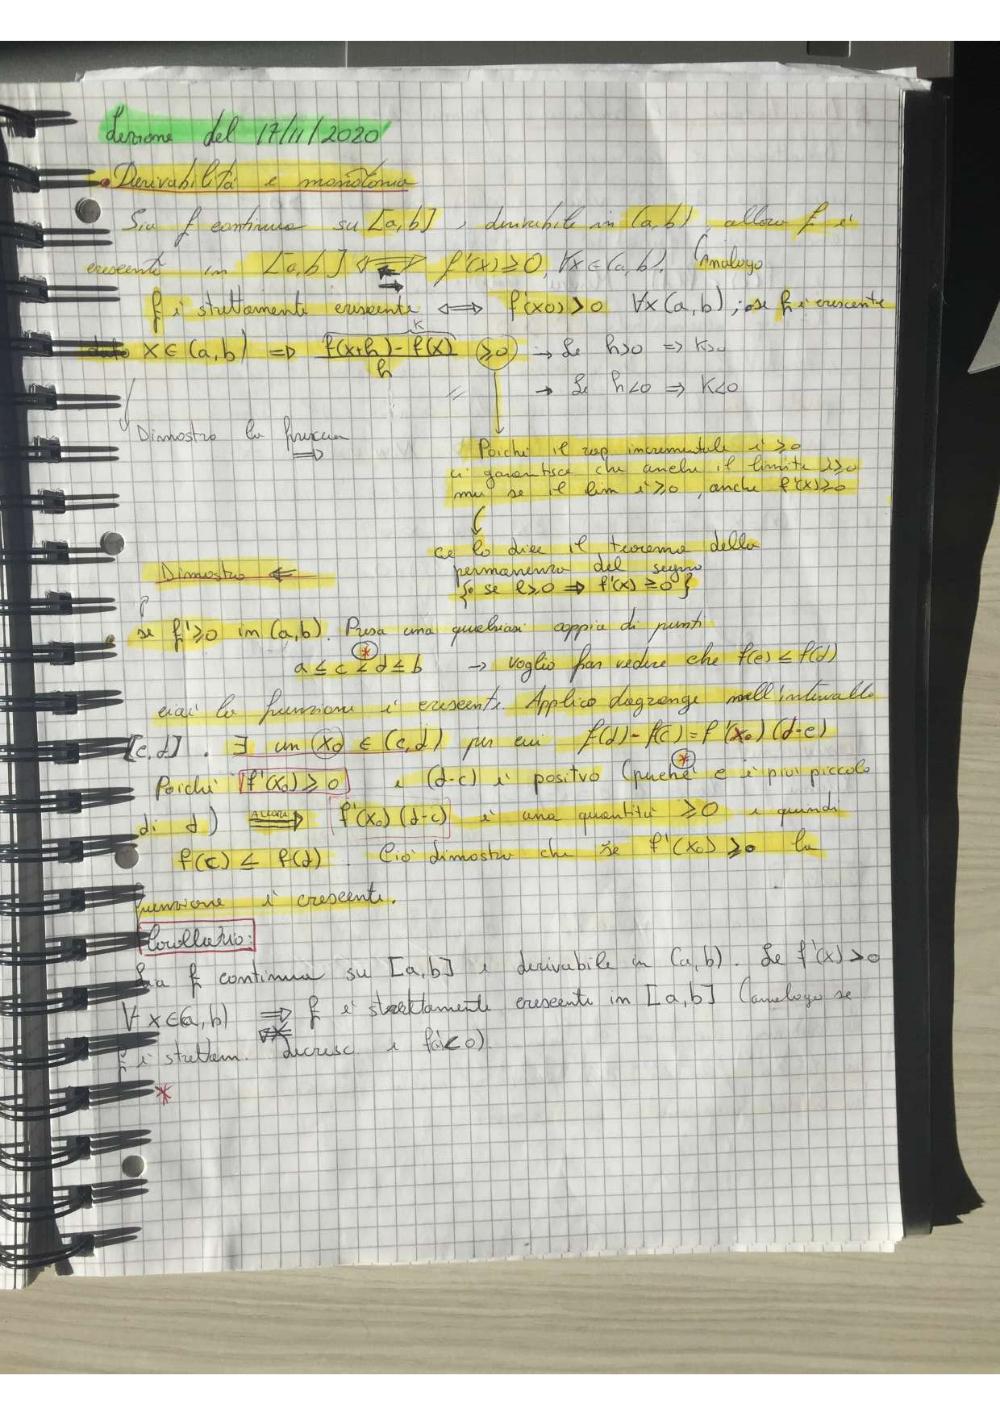 Lezione del 17/11/2020
• Derivabilità e monotonia
Sia f continua su [a,b], derivabile in (a,b) allora f è
crescente in [a,b] ⟺ f'(x)≥0, ∀x∈(a,b). Analogo
f è strettamente crescente ⟺ f'(x0)>0 ∀x(a,b); se f è crescente
dato x∈(a,b) ⇒ f(x+h)-f(x) / h ≥0 → Se h>0 ⇒ K>0
K
→ Se h<0 ⇒ K<0
Dimostro la freccia ⇒
Poichè il rap incrementale è ≥0
ci garantisce che anche il limite è≥0
ma se il lim è≥0, anche f'(x)≥0
ce lo dice il teorema della
permanenza del segno
{ se l≥0 ⇒ f'(x)≥0 }
Dimostro ⇐
se f'≥0 in (a,b). Presa una qualsiasi coppia di punti
a≤c<d≤b → voglio far vedere che f(c)≤f(d)
*
cioè la funzione è crescente. Applico Lagrange nell'intervallo
[c,d]. ∃ un x0 ∈(c,d) per cui f(d)-f(c)=f'(x0)(d-c)
Poichè f'(x0)≥0 e (d-c) è positivo (perchè c è più piccolo
*
di d) ALLORA ⇒ f'(x0)(d-c) è una quantità ≥0 e quindi
f(c)≤f(d). Ciò dimostra che se f'(x0)≥0 la
funzione è crescente.
Corollario:
Sia f continua su [a,b] e derivabile in (a,b). Se f'(x)>0
∀x∈(a,b) ⇒ f è strettamente crescente in [a,b] (analogo se
f è strettam. decresc e f'<0)
*